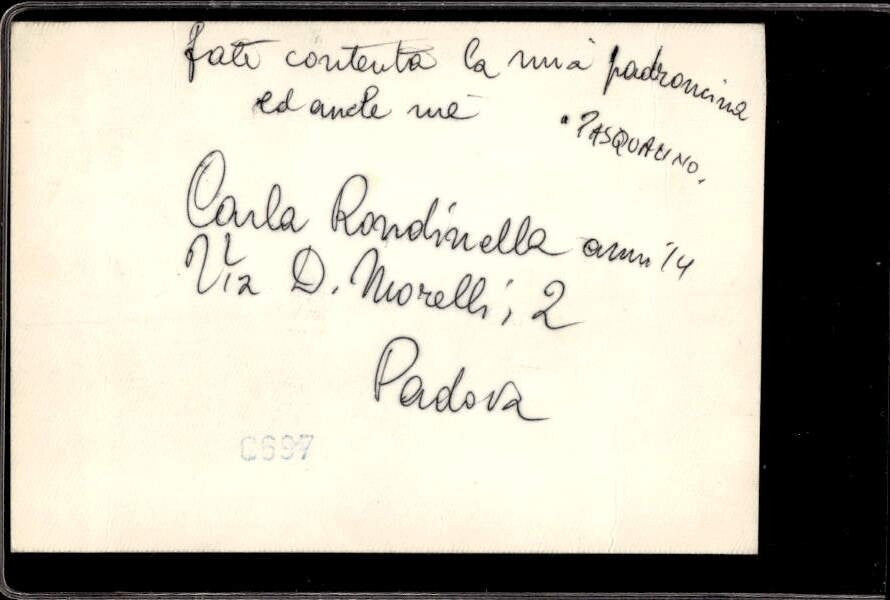 fate contenta la mia padroncina
ed anche me
"PASQUALINO.
Carla Rondinella anni 14
Via D. Morelli, 2
Padova
C697